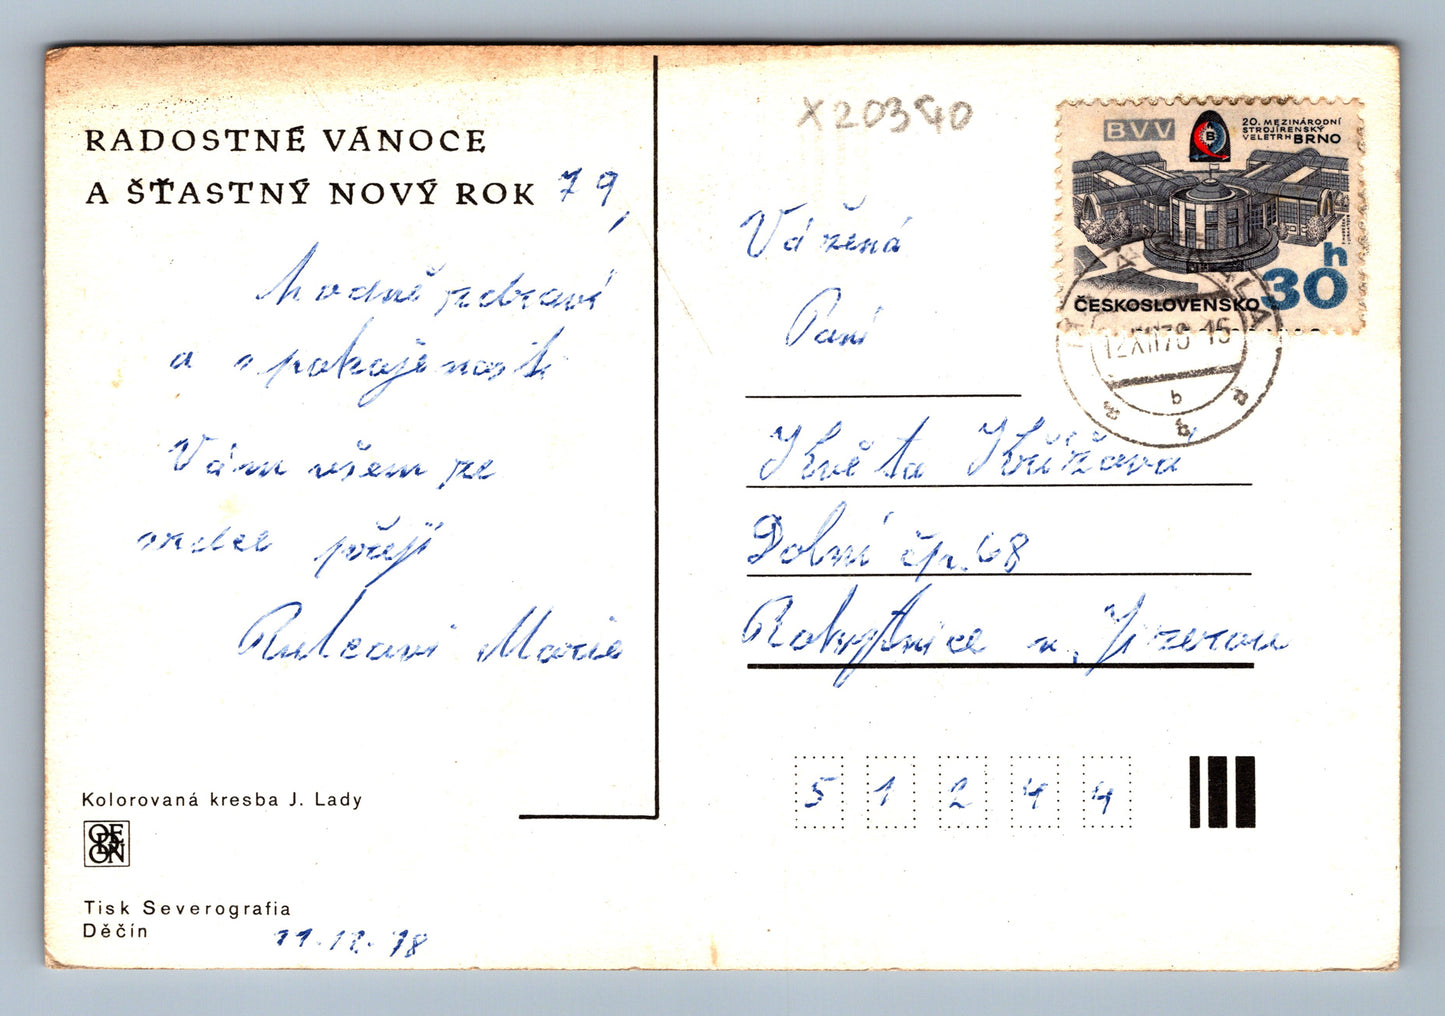 RADOSTNÉ VÁNOCE
A ŠŤASTNÝ NOVÝ ROK 79,
hodně zdraví
a spokojenosti
Vám všem ze
srdce přejí
Marie
Kolorovaná kresba J. Lady
ODEON
Tisk Severografia
Děčín
11.12.78
X20340
BVV
20. MEZINÁRODNÍ
STROJÍRENSKÝ
VELETRH BRNO
ČESKOSLOVENSKO 30h
12.XII.78-15
b
Vážená
Paní
Květa Křížová
Dolní čp. 68
Rokytnice n. Jizerou
5 1 2 4 4